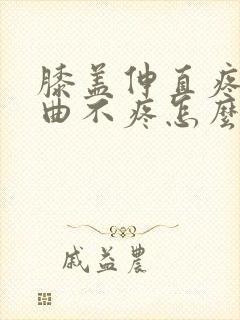 膝盖伸直疼
曲不疼怎麼
戚益農